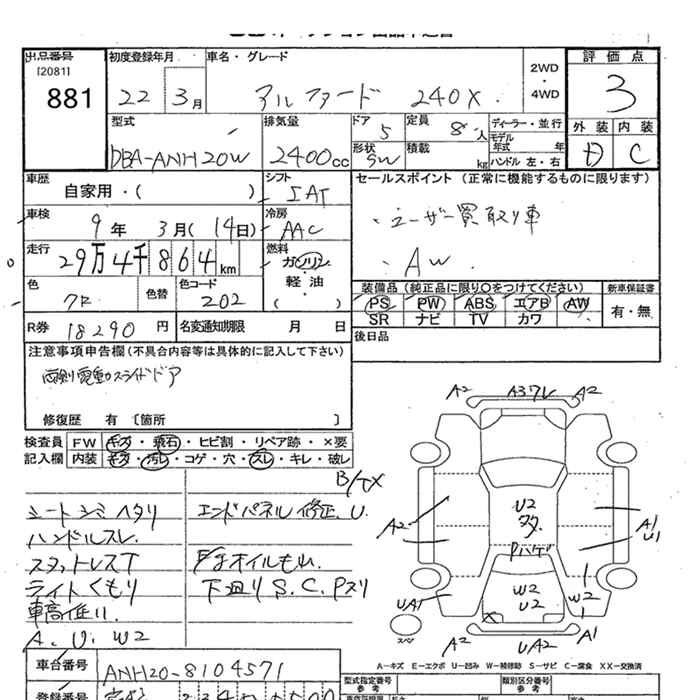 出品番号
[2081]
881
初度登録年月
22 3月
車名・グレード
アルファード 240X
2WD
4WD
評価点
3
外装 内装
D C
型式
DBA-ANH20W
排気量
2400cc
ドア
5
定員
8人
ディーラー・並行
モデル
年式 年
形状
SW
積載
kg
ハンドル 左・右
車歴
自家用・( )
シフト
IAT
セールスポイント (正常に機能するものに限ります)
・ユーザー買取り車
・AW
車検
9年 3月(14日)
冷房
AAC
走行
29万4千864km
燃料
ガソリン
軽・油
( )
色
クロ
色替
色コード
202
装備品 (純正品に限り○をつけてください)
新車保証書
PS PW ABS エアB AW
SR ナビ TV カワ
有・無
R券 18290円
名変通知期限 月 日
後日品
注意事項申告欄(不具合内容等は具体的に記入して下さい)
両側電動スライドドア
修復歴 有 [箇所 ]
検査員
記入欄
FW キズ・飛石・ヒビ割・リペア跡・×要
内装 キズ・汚レ・コゲ・穴・スレ・キレ・破レ
シートシミヘタリ
ハンドルスレ
スタットレスT
ライトくもり
車高低い
A、U、W2
エンドパネル修正、U
オイルもれ
下廻りS.C.Pスリ
A2 A3ワレ A2
A2
U2
多
Pハゲ
A1
U1
W2
U2
W2
UA1
スペア
A2 UA2 A1
A-キズ E-エクボ U-凹み W-補修跡 S-サビ C-腐食 XX-交換済
車台番号
ANH20-8104571
登録番号
型式指定番号
参考
類別区分番号
参考